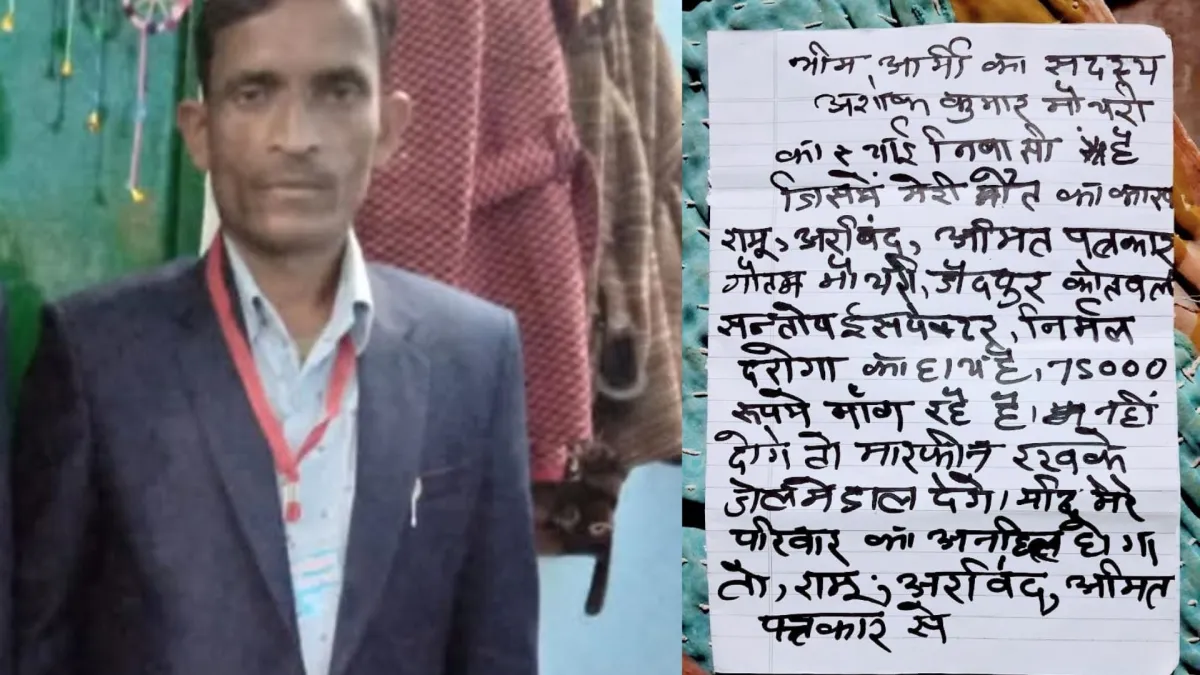 भीम, आर्मी का सदस्य
अशोक कुमार मौर्य
का स्थाई निवासी है
जिसमें मेरी मौत का कारण
रामू, अरविंद, अमित पत्रकार
गौतम मौर्य, जैदपुर कोतवाल
सन्तोष ईंसपेक्टर, निर्मल
दरोगा का हाथ है, 75000
रूपये माँग रहे है। नहीं
दोगे तो मारफीन रखके
जेल मे डाल देंगे। यदि मेरे
परिवार का अनहित होगा
तो, रामू, अरविंद, अमित
पत्रकार से